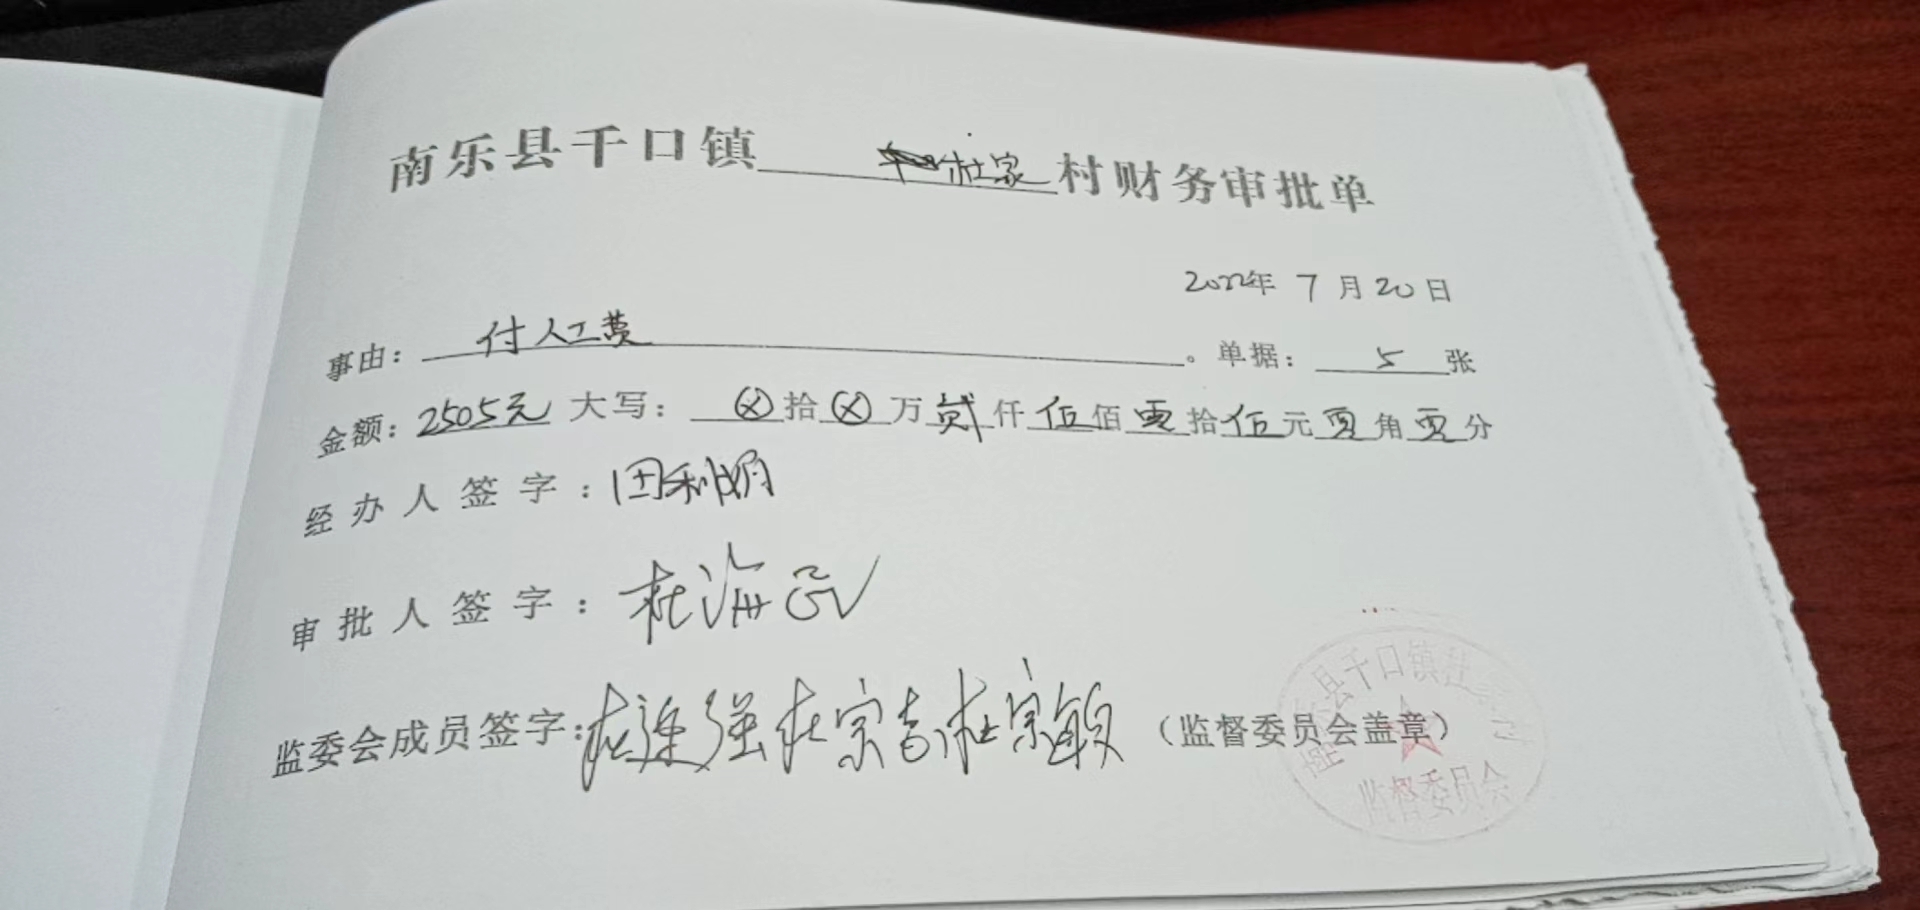 南乐县千口镇杜家村财务审批单
2022年 7月20日
事由：付人工费。单据：5张
金额：2505元 大写：ⓧ拾ⓧ万贰仟伍佰零拾伍元零角零分
经办人签字：田利娟
审批人签字：杜海
监委会成员签字：杜连强 杜宗吉 杜宗敏（监督委员会盖章）
县千口镇杜家村
监督委员会